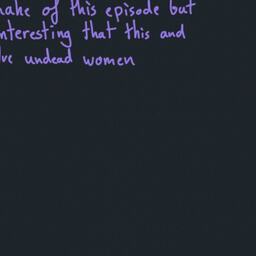 make of this episode but
interesting that this and
undead women